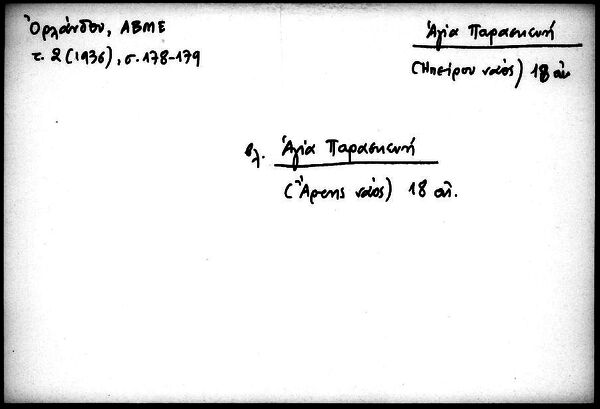 Ὀρλάνδου, ΑΒΜΕ
τ. 2 (1936), σ. 178-179
Ἁγία Παρασκευή
(Ἠπείρου ναός) 18 αἰ.
βλ. Ἁγία Παρασκευή
(Ἄρτης ναός) 18 αἰ.